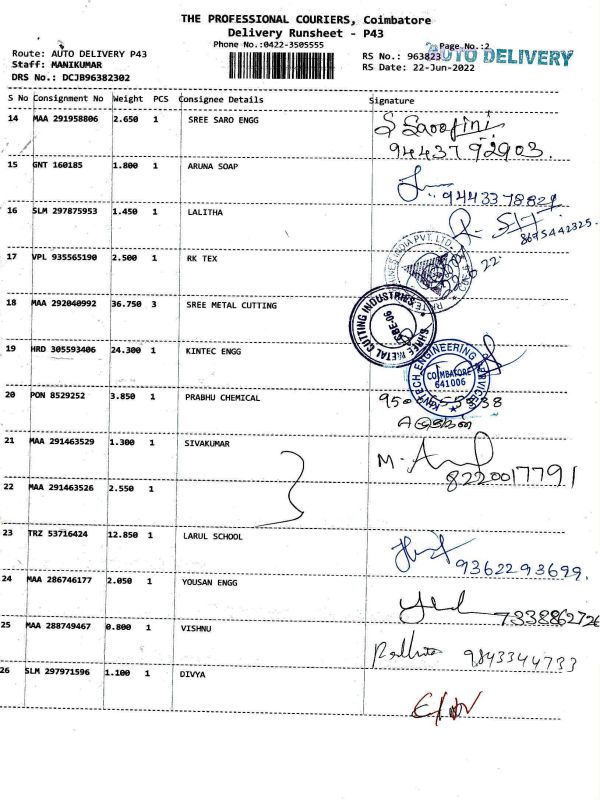 THE PROFESSIONAL COURIERS, Coimbatore
Delivery Runsheet - P43
Phone No.:0422-3505555
Page No.:2
AUTO DELIVERY
Route: AUTO DELIVERY P43
RS No.: 963823
Staff: MANIKUMAR
RS Date: 22-Jun-2022
DRS No.: DCJB96382302
S No Consignment No Weight PCS Consignee Details Signature
14 MAA 291958806 2.650 1 SREE SARO ENGG
S Sarojini
9443792903.
15 GNT 160185 1.800 1 ARUNA SOAP
9443378821
16 SLM 297875953 1.450 1 LALITHA
8695442325.
17 VPL 935565190 2.500 1 RK TEX
18 MAA 292040992 36.750 3 SREE METAL CUTTING
SHREE METAL CUTTING INDUSTRIES
CBE-06
19 HRD 305593406 24.300 1 KINTEC ENGG
KINTECH ENGINEERING SERVICES
COIMBATORE
641006
20 PON 8529252 3.850 1 PRABHU CHEMICAL
21 MAA 291463529 1.300 1 SIVAKUMAR
8220017791
22 MAA 291463526 2.550 1
23 TRZ 53716424 12.850 1 LARUL SCHOOL
9362293699.
24 MAA 286746177 2.050 1 YOUSAN ENGG
7338862726
25 MAA 288749467 0.800 1 VISHNU
9843344733
26 SLM 297971596 1.100 1 DIVYA